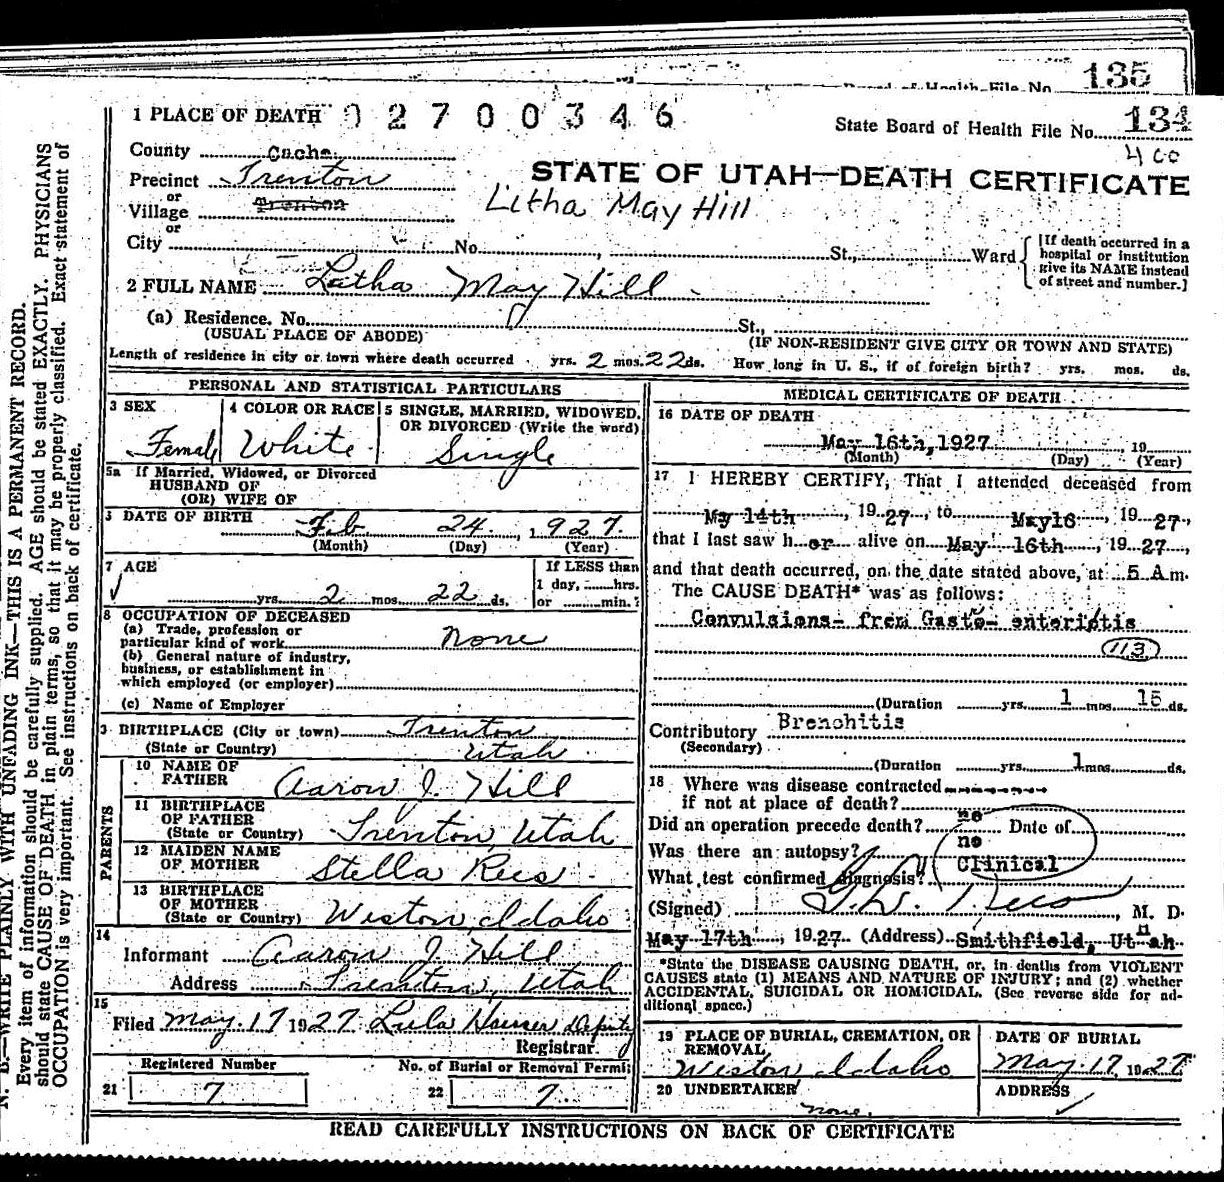 135
Board of Health File No.
1 PLACE OF DEATH 02700346
State Board of Health File No. 134
400
County Cache
STATE OF UTAH—DEATH CERTIFICATE
Precinct Trenton
or
Village Trenton
Litha May Hill
or
City No. , St., Ward
[If death occurred in a
hospital or institution
give its NAME instead
of street and number.]
2 FULL NAME Latha May Hill
(a) Residence. No. St.,
(USUAL PLACE OF ABODE) (IF NON-RESIDENT GIVE CITY OR TOWN AND STATE)
Length of residence in city or town where death occurred yrs. 2 mos. 22 ds. How long in U. S., if of foreign birth? yrs. mos. ds.
PERSONAL AND STATISTICAL PARTICULARS
3 SEX
Female
4 COLOR OR RACE
White
5 SINGLE, MARRIED, WIDOWED,
OR DIVORCED (Write the word)
Single
5a If Married, Widowed, or Divorced
HUSBAND OF
(OR) WIFE OF
DATE OF BIRTH Feb 24, 1927.
(Month) (Day) (Year)
7 AGE
yrs. 2 mos. 22 ds.
If LESS than
1 day, hrs.
or min.?
8 OCCUPATION OF DECEASED
(a) Trade, profession or
particular kind of work none
(b) General nature of industry,
business, or establishment in
which employed (or employer)
(c) Name of Employer
BIRTHPLACE (City or town) Trenton
(State or Country) Utah
PARENTS
10 NAME OF
FATHER Aaron J. Hill
11 BIRTHPLACE
OF FATHER
(State or Country) Trenton, Utah
12 MAIDEN NAME
OF MOTHER Stella Rees
13 BIRTHPLACE
OF MOTHER
(State or Country) Weston, Idaho
14
Informant Aaron J. Hill
Address Trenton, Utah
15
Filed May. 17 1927 Lula Hauser deputy
Registrar
Registered Number No. of Burial or Removal Permit
21 7 22 7.
MEDICAL CERTIFICATE OF DEATH
16 DATE OF DEATH
May 16th, 1927 19
(Month) (Day) (Year)
17 I HEREBY CERTIFY, That I attended deceased from
May 14th, 1927, to May16, 1927,
that I last saw her alive on May 16th, 1927,
and that death occurred, on the date stated above, at 5 A m.
The CAUSE DEATH* was as follows:
Convulsions- from Gasto- enteriptis
113
(Duration yrs. 1 mos. 15 ds.
Contributory Bronohitis
(Secondary)
(Duration yrs. 1 mos. ds.
18 Where was disease contracted
if not at place of death?
Did an operation precede death? no Date of
Was there an autopsy? no
What test confirmed diagnosis? Clinical
(Signed) , M. D.
May 17th, 1927. (Address) Smithfield, Utah
*State the DISEASE CAUSING DEATH, or, in deaths from VIOLENT
CAUSES state (1) MEANS AND NATURE OF INJURY; and (2) whether
ACCIDENTAL, SUICIDAL OR HOMICIDAL. (See reverse side for ad-
ditional space.)
19 PLACE OF BURIAL, CREMATION, OR
REMOVAL
Weston Idaho
DATE OF BURIAL
May. 17, 1927
20 UNDERTAKER
none.
ADDRESS
READ CAREFULLY INSTRUCTIONS ON BACK OF CERTIFICATE
N. B.—WRITE PLAINLY WITH UNFADING INK—THIS IS A PERMANENT RECORD.
Every item of information should be carefully supplied. AGE should be stated EXACTLY. PHYSICIANS
should state CAUSE OF DEATH in plain terms, so that it may be properly classified. Exact statement of
OCCUPATION is very important. See instructions on back of certificate.